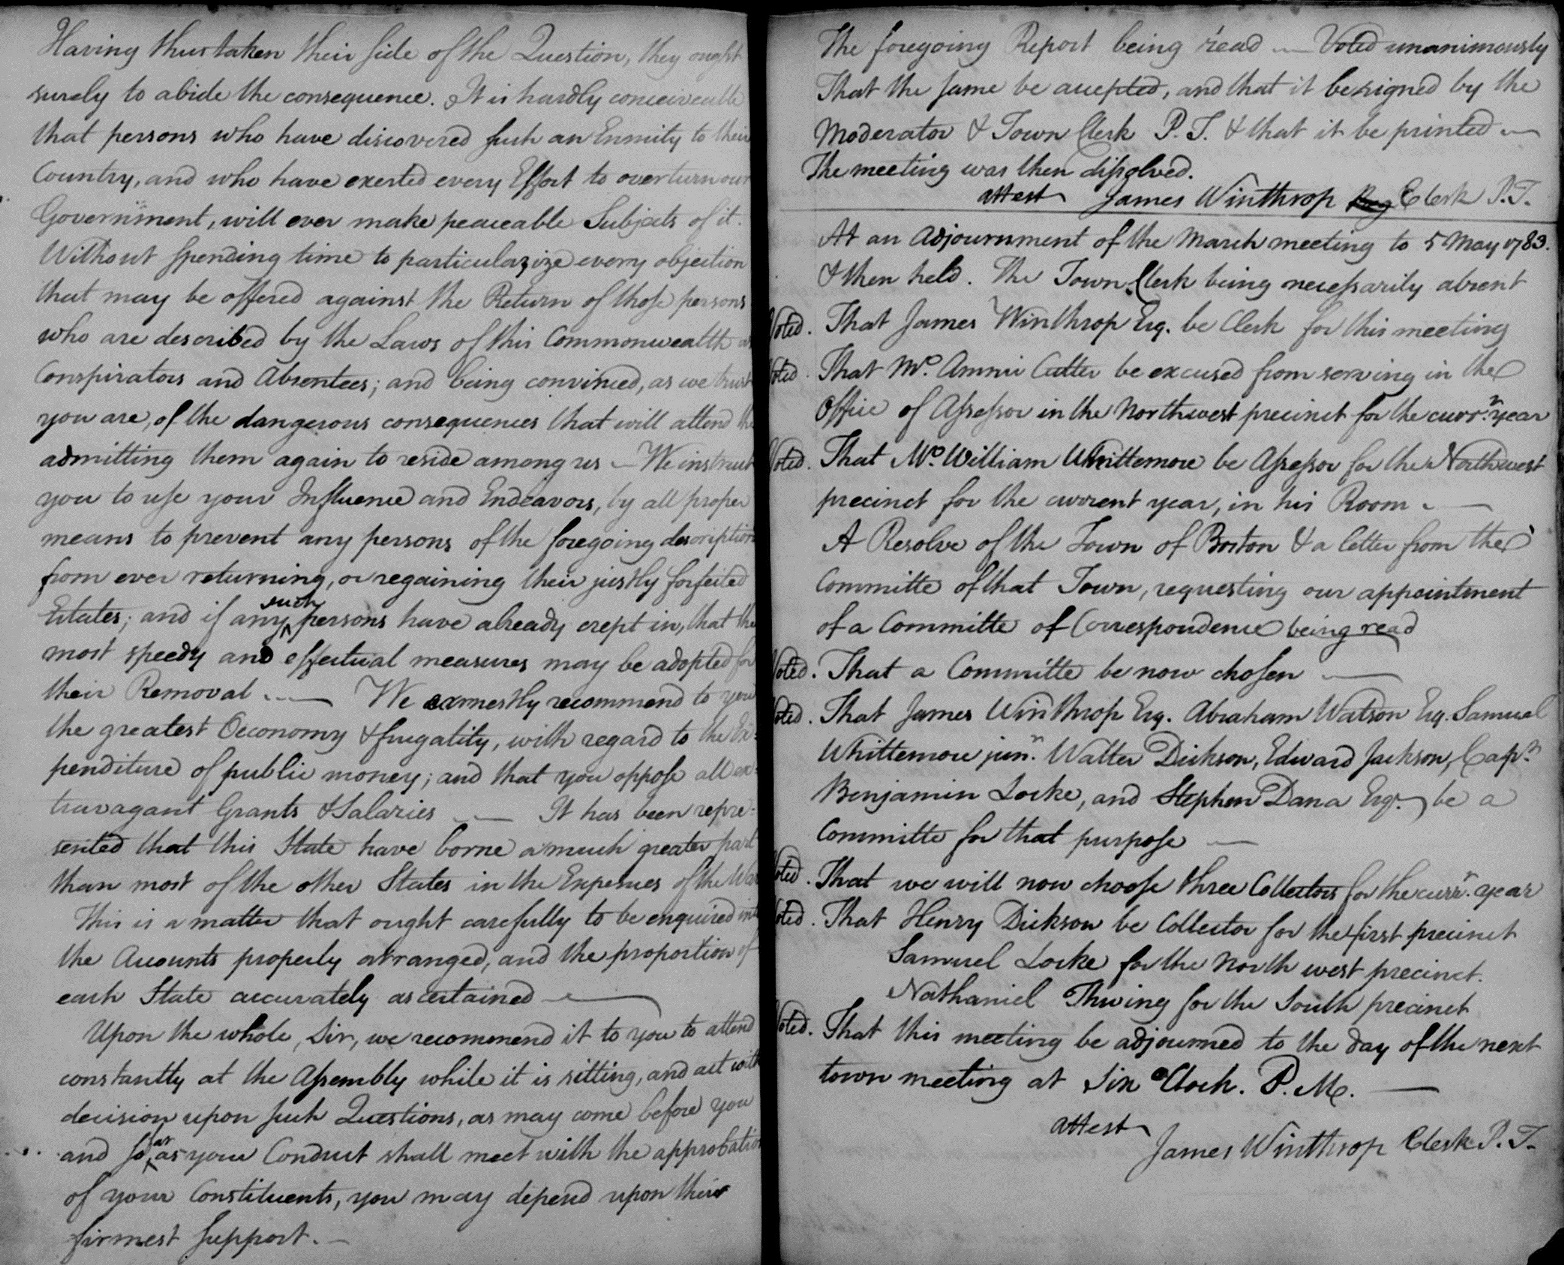 Having thus taken their side of the Question, they ought
surely to abide the consequence. It is hardly conceiveable
that persons who have discovered such an Enmity to their
Country, and who have exerted every Effort to overturn our
Government, will ever make peaceable Subjects of it.
Without spending time to particularize every objection
that may be offered against the Return of those persons
who are described by the Laws of this Commonwealth as
Conspirators and Absentees; and being convinced, as we trust
you are, of the dangerous consequences that will attend the
admitting them again to reside among us — We instruct
you to use your Influence and Endeavors, by all proper
means to prevent any persons of the foregoing description
from ever returning, or regaining their justly forfeited
Estates; and if any such persons have already crept in, that the
most speedy and effectual measures may be adopted for
their Removal. — We earnestly recommend to you
the greatest Oeconomy & frugality, with regard to the Ex-
penditure of public money; and that you oppose all ex-
travagant Grants & Salaries — It has been repre-
sented that this State have borne a much greater part
than most of the other States in the Expenses of the War
This is a matter that ought carefully to be enquired into
the Accounts properly arranged, and the proportion of
each State accurately ascertained —
Upon the whole, Sir, we recommend it to you to attend
constantly at the Assembly while it is sitting, and act with
decision upon such Questions, as may come before you
and so far as your Conduct shall meet with the approbation
of your Constituents, you may depend upon their
firmest support. —
The foregoing Report being read — Voted unanimously
That the same be accepted, and that it be signed by the
Moderator & Town Clerk P. T. & that it be printed —
The meeting was then dissolved.
attest James Winthrop Clerk P. T.
At an Adjournment of the March meeting to 5 May 1783.
& then held. The Town Clerk being necessarily absent
Voted. That James Winthrop Esq. be Clerk for this meeting
Voted. That Mr. Ammi Cutter be excused from serving in the
Office of Assessor in the Northwest precinct for the currt. year
Voted. That Mr. William Whittemore be Assessor for the Northwest
precinct for the current year, in his Room. —
A Resolve of the Town of Boston & a letter from the
Committe of that Town, requesting our appointment
of a Committe of Correspondence being read
Voted. That a Committe be now chosen —
Voted. That James Winthrop Esq. Abraham Watson Esq. Samuel
Whittemore junr. Walter Dickson, Edward Jackson, Capt.
Benjamin Locke, and Stephen Dana Esqr. be a
Committe for that purpose —
Voted. That we will now choose three Collectors for the currt. year
Voted. That Henry Dickson be Collector for the first precinct
Samuel Locke for the North west precinct.
Nathaniel Thwing for the South precinct
Voted. That this meeting be adjourned to the day of the next
town meeting at Six oClock. P. M. —
attest
James Winthrop Clerk P. T.